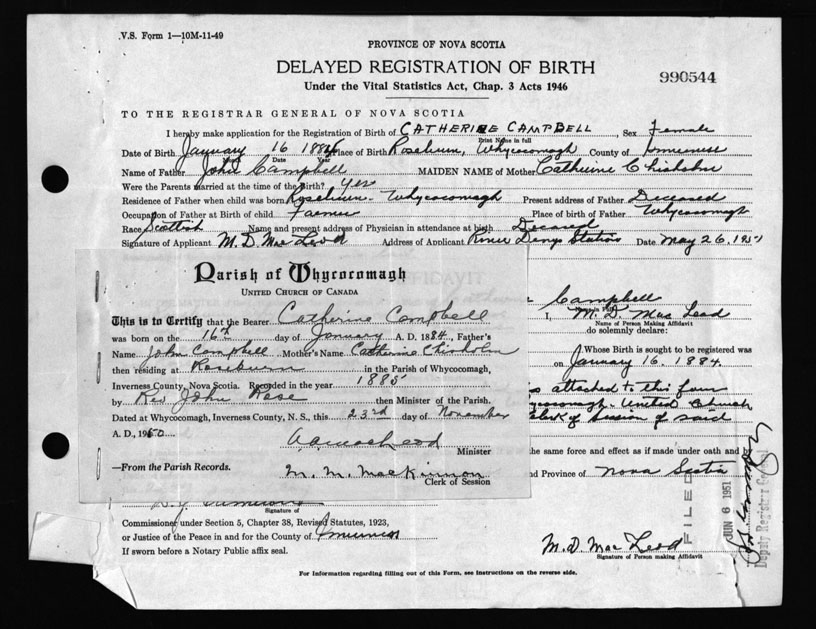 V.S. Form 1—10M-11-49
PROVINCE OF NOVA SCOTIA
DELAYED REGISTRATION OF BIRTH
990544
Under the Vital Statistics Act, Chap. 3 Acts 1946
TO THE REGISTRAR GENERAL OF NOVA SCOTIA
I hereby make application for the Registration of Birth of CATHERINE CAMPBELL, Sex Female
Print Name in full
Date of Birth January 16 1884 Place of Birth Roseburn, Whycocomagh County of Inverness
Date Year
Name of Father John Campbell MAIDEN NAME of Mother Catherine Chisholm
Were the Parents married at the time of the Birth? Yes
Residence of Father when child was born Roseburn - Whycocomagh Present address of Father Deceased
Occupation of Father at Birth of child Farmer Place of birth of Father Whycocomagh
Race Scottish Name and present address of Physician in attendance at birth Deceased
Signature of Applicant M. D. Mac Leod Address of Applicant River Denys Station Date May 26, 1951
Parish of Whycocomagh
UNITED CHURCH OF CANADA
This is to Certify that the Bearer Catherine Campbell
was born on the 16th of January A. D. 1884, Father's
Name John Campbell Mother's Name Catherine Chisholm
then residing at Roseburn in the Parish of Whycocomagh,
Inverness County, Nova Scotia. Recorded in the year 1885
by Rev John Rose then Minister of the Parish.
Dated at Whycocomagh, Inverness County, N. S., this 23rd day of November
A. D., 1950
Minister
—From the Parish Records.
M. M. MacKinnon
Clerk of Session
Campbell
I, M. D. Mac Leod
Name of Person Making Affidavit
do solemnly declare:
Whose Birth is sought to be registered was
on January 16, 1884.
is attached to this form
Whycocomagh United Church
clerk of session of said
the same force and effect as if made under oath and
and Province of Nova Scotia
FILED
JUN 6 1951
Deputy Registrar General
Signature of
Commissioner under Section 5, Chapter 38, Revised Statutes, 1923,
or Justice of the Peace in and for the County of Inverness
If sworn before a Notary Public affix seal.
M. D. Mac Leod
Signature of Person making Affidavit
For Information regarding filling out of this Form, see Instructions on the reverse side.